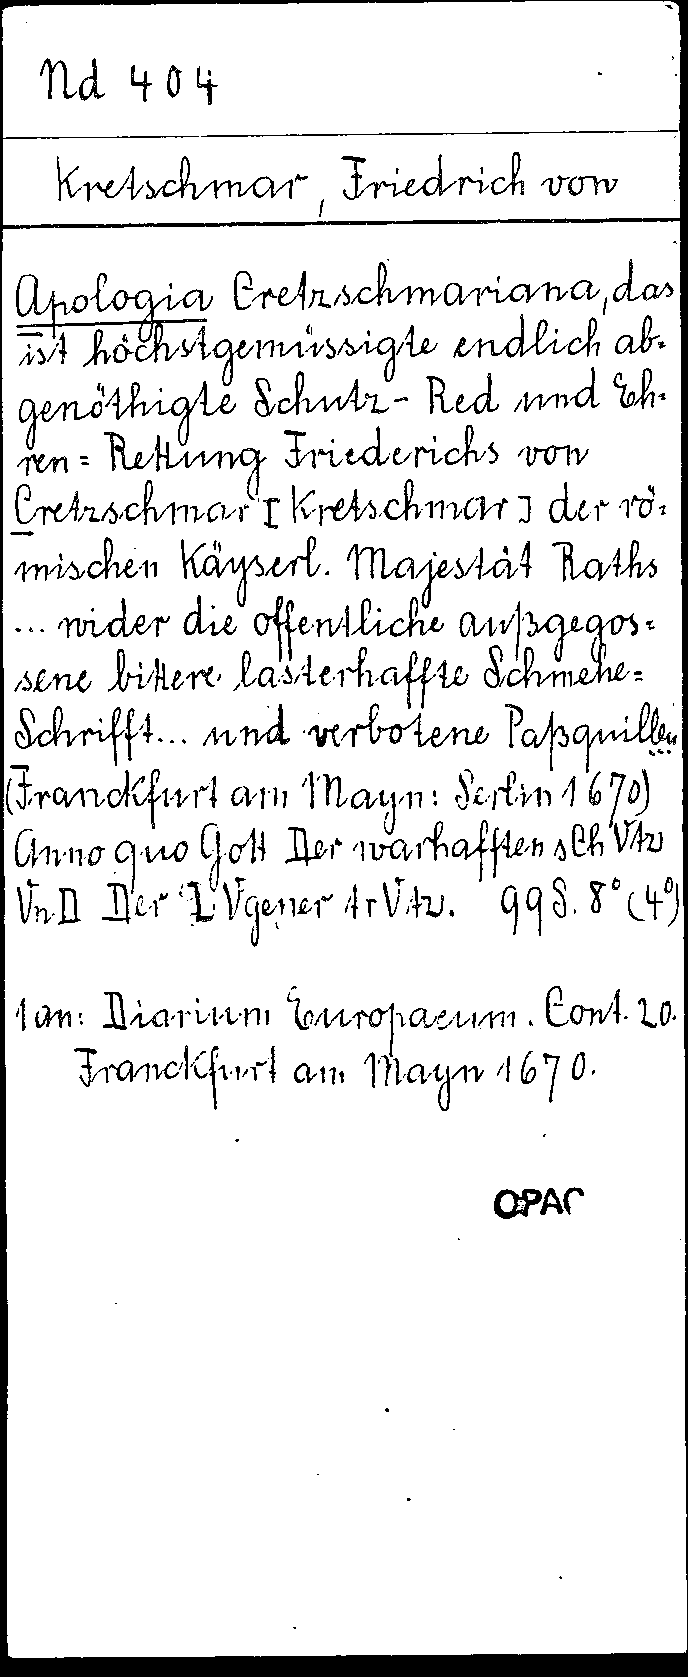 Nd 404
Kretschmar, Friedrich von
Apologia Cretzschmariana, das
ist höchstgemüssigte endlich ab=
genöthigte Schutz-Red und Eh=
ren=Rettung Friederichs von
Cretzschmar [Kretschmar] der rö=
mischen Käyserl. Majestät Raths
... wider die offentliche außgegos=
sene bittere lasterhaffte Schmehe=
Schrifft... und verbotene Paßquillen
(Franckfurt am Mayn: Serlin 1670)
Anno quo Gott Der warhafften sCh Vtz
VnD Der L Vgener trVtz. 99 S. 8° (4°)
1 an: Diarium Europaeum. Cont. 20.
Franckfurt am Mayn 1670.
OPAC